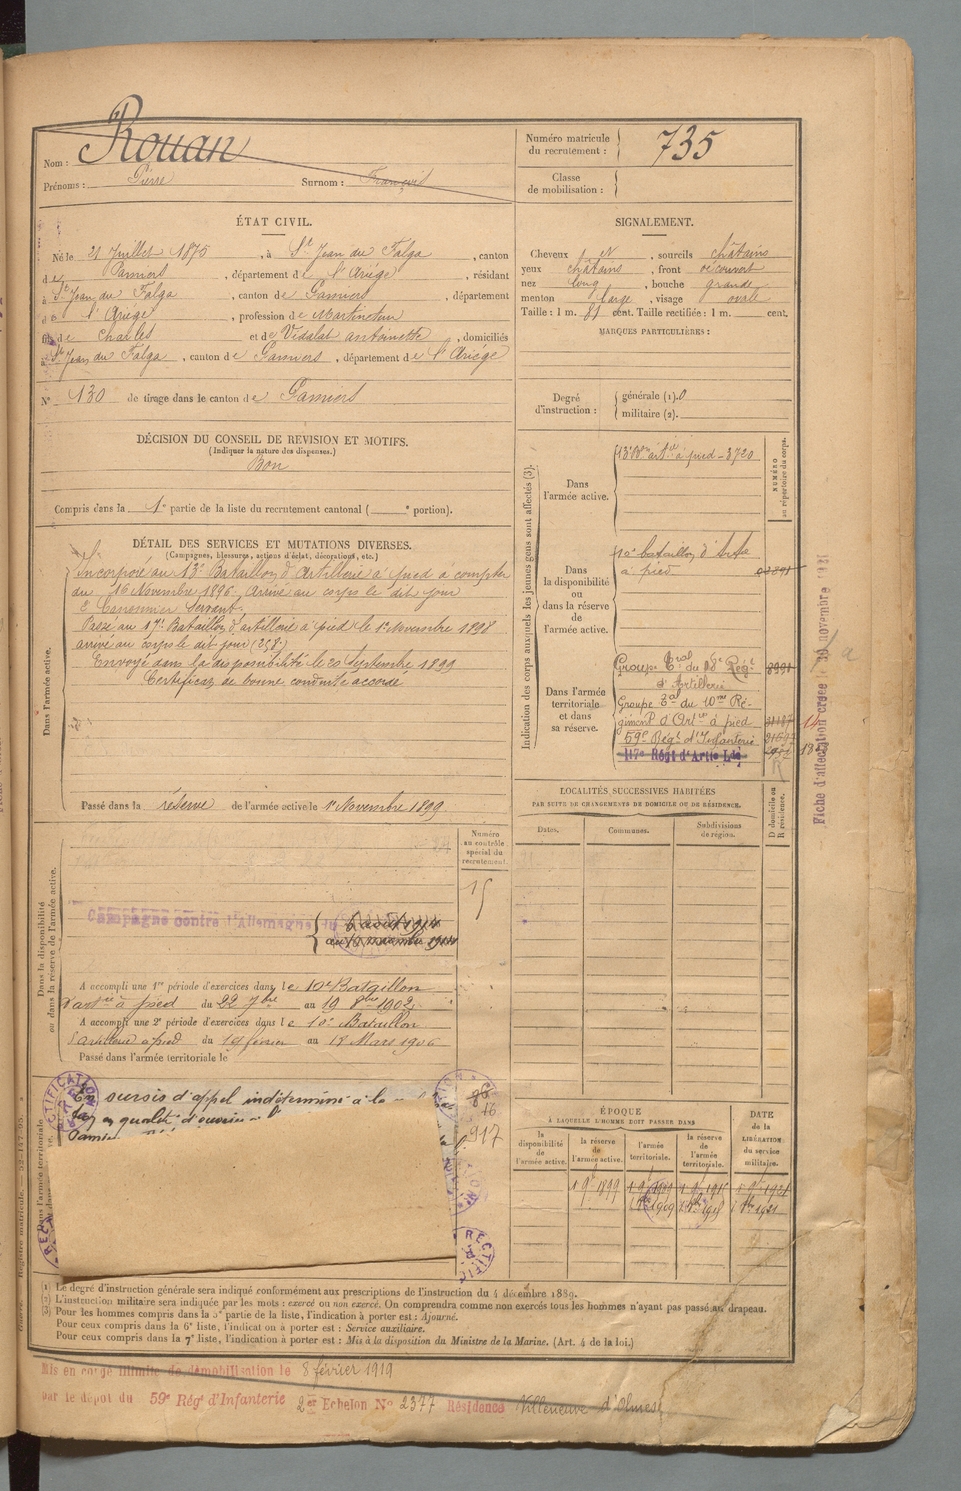 Nom : Rouan
Prénoms : Pierre Surnom : François
Numéro matricule du recrutement : 735
Classe de mobilisation :
ÉTAT CIVIL.
Né le 21 Juillet 1875, à St Jean du Falga, canton
de Pamiers, département de l'Ariège, résidant
à St Jean du Falga, canton de Pamiers, département
de l'Ariège, profession de Martineur
fils de Charles et de Vidalat antoinette, domiciliés
à St Jean du Falga, canton de Pamiers, département de l'Ariège
N° 130 de tirage dans le canton de Pamiers
SIGNALEMENT.
Cheveux N, sourcils châtains
yeux châtains, front découvert
nez long, bouche grande
menton large, visage ovale
Taille : 1 m. 81 cent. Taille rectifiée : 1 m. cent.
MARQUES PARTICULIÈRES :
Degré d'instruction : générale (1). 0
militaire (2).
DÉCISION DU CONSEIL DE REVISION ET MOTIFS.
(Indiquer la nature des dispenses.)
Bon
Compris dans la 1e partie de la liste du recrutement cantonal ( e portion).
DÉTAIL DES SERVICES ET MUTATIONS DIVERSES.
(Campagnes, blessures, actions d'éclat, décorations, etc.)
Dans l'armée active.
Incorporé au 13e Bataillon d'Artillerie à pied à compter
du 16 Novembre 1896. Arrivé au corps le dit jour
2e Canonnier Servant.
Passé au Bataillon d'artillerie à pied le 1er Novembre 1898
arrivé au corps le dit jour
Envoyé dans la disponibilité le 20 Septembre 1899
Certificat de bonne conduite accordé
Passé dans la réserve de l'armée active le 1er Novembre 1899
Indication des corps auxquels les jeunes gens sont affectés (3).
NUMÉRO au répertoire du corps.
Dans l'armée active.
13e Bon artie à pied - 3720
Dans la disponibilité ou dans la réserve de l'armée active.
10e bataillon d'Artie
à pied
Dans l'armée territoriale et dans sa réserve.
Groupe Tal du 10e Régt 8991
d'Artillerie
Groupe Tal du 10me Ré-
giment d'Artie à pied
59e Régt d'Infanterie
117e Régt d'Artie Lde
Fiche d'affectation créée le 30 novembre 1921
LOCALITÉS SUCCESSIVES HABITÉES
PAR SUITE DE CHANGEMENTS DE DOMICILE OU DE RÉSIDENCE.
Dates. Communes. Subdivisions de région. D domicile ou R résidence.
Numéro au contrôle spécial du recrutement.
15
Dans la disponibilité ou dans la réserve de l'armée active.
Campagne contre l'Allemagne du
A accompli une 1re période d'exercices dans le 10e Bataillon
d'artie à pied du 22 7bre au 19 8bre 1902
A accompli une 2e période d'exercices dans le 10e Bataillon
d'artillerie à pied du 19 février au 18 Mars 1906
Passé dans l'armée territoriale le
Dans l'armée territoriale
En sursis d'appel indéterminé à la
en qualité d'ouvrier
917
RECTIFICATION
ÉPOQUE
À LAQUELLE L'HOMME DOIT PASSER DANS
la disponibilité de l'armée active.
la réserve de l'armée active.
l'armée territoriale.
la réserve de l'armée territoriale.
DATE de la LIBÉRATION du service militaire.
1 9bre 1899 1 9bre 1909 1 9bre 1915 1 9bre 1921
(1) Le degré d'instruction générale sera indiqué conformément aux prescriptions de l'instruction du 4 décembre 1889.
(2) L'instruction militaire sera indiquée par les mots : exercé ou non exercé. On comprendra comme non exercés tous les hommes n'ayant pas passé au drapeau.
(3) Pour les hommes compris dans la 5e partie de la liste, l'indication à porter est : Ajourné.
Pour ceux compris dans la 6e liste, l'indication à porter est : Service auxiliaire.
Pour ceux compris dans la 7e liste, l'indication à porter est : Mis à la disposition du Ministre de la Marine. (Art. 4 de la loi.)
Mis en congé illimité de démobilisation le 8 février 1919
par le dépôt du 59e Régt d'Infanterie 2er Echelon No 2377 Résidence Villeneuve d'Olmes